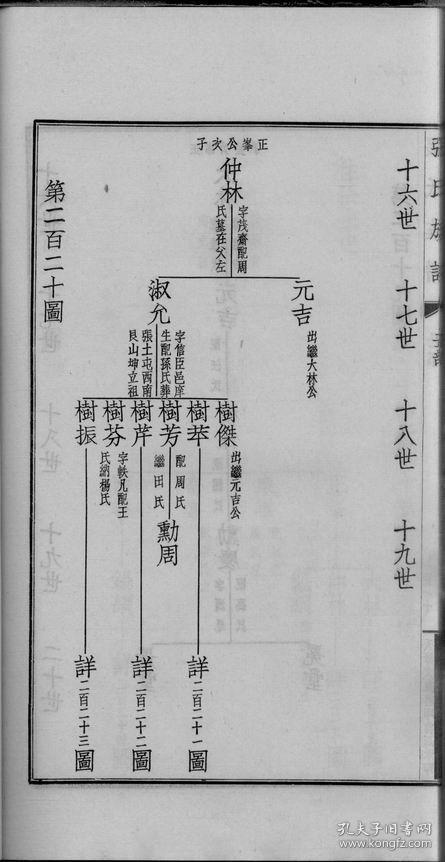 張氏族譜
十六世
十七世
十八世
十九世
正峯公次子
仲林
字茂齋配周
氏墓在父左
元吉
出繼大林公
淑允
字信臣邑庠
生配孫氏葬
張土屯西南
艮山坤立祖
樹傑
出繼元吉公
樹苹
詳二百二十一圖
樹芳
配周氏
繼田氏
勳周
樹芹
詳二百二十二圖
樹芬
字軼凡配王
氏納楊氏
樹振
詳二百二十三圖
第二百二十圖
孔夫子旧书网
www.kongfz.com